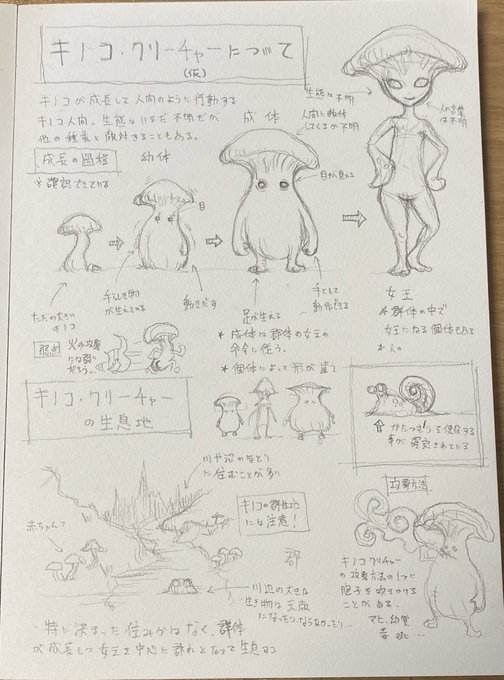 キノコ・クリーチャーについて
(仮)
キノコが成長して人間のように行動する
キノコ人間。生態はいまだ不明だが
他の種族と敵対することもある。
成長の過程
※確認できてる
幼体
成体
生態は不明
人間に敵対
してくるか不明
人の言葉
は不明
目
目が見える
ただの大きい
キノコ
手らしき物
が生えてくる
動きだす
足が生えて
手として
動作できる
女王
＊群体の中で
女王になる個体もある
＊成体は群体の女王の
命令に従う。
＊個体によって形が違う
弱点
火の攻撃
には弱い
だろう…
キノコ・クリーチャー
の生息地
川や沼のほとり
に住むことが多い
キノコの群生地
には注意!
赤ちゃん?
郡
川辺の大きな
生き物は
になったりならなかったり…
かたつむりを使役する
事が確定されている
攻撃方法
キノコクリーチャー
の攻撃方法の1つに
胞子を吹きかける
ことがある。
マヒ、幻覚
毒 etc…
・特に決まった住みかはなく、群体
が成長して女王を中心に群れとなって生息する